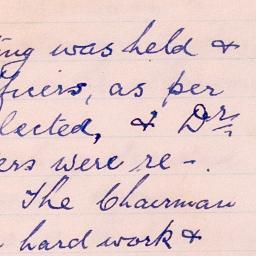 ing was held &
fficers, as per
lected, & Drs
ers were re-.
The Chairman
hard work &